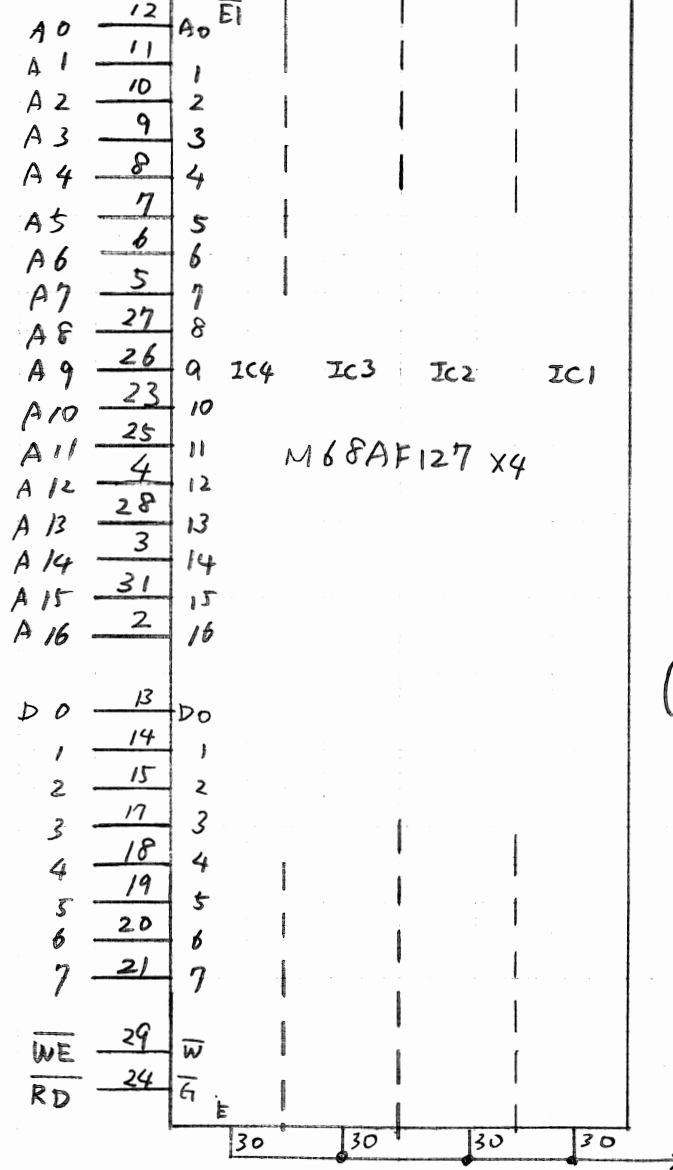 12 E̅1̅
A0 A0
A1 11 1
A2 10 2
A3 9 3
A4 8 4
A5 7 5
A6 6 6
A7 5 7
A8 27 8
A9 26 9 IC4 IC3 IC2 IC1
A10 23 10
A11 25 11
M68AF127 X4
A12 4 12
A13 28 13
A14 3 14
A15 31 15
A16 2 16
D0 13 D0
1 14 1
2 15 2
3 17 3
4 18 4
5 19 5
6 20 6
7 21 7
W̅E̅ 29 W̅
R̅D̅ 24 G̅
E
30 30 30 30